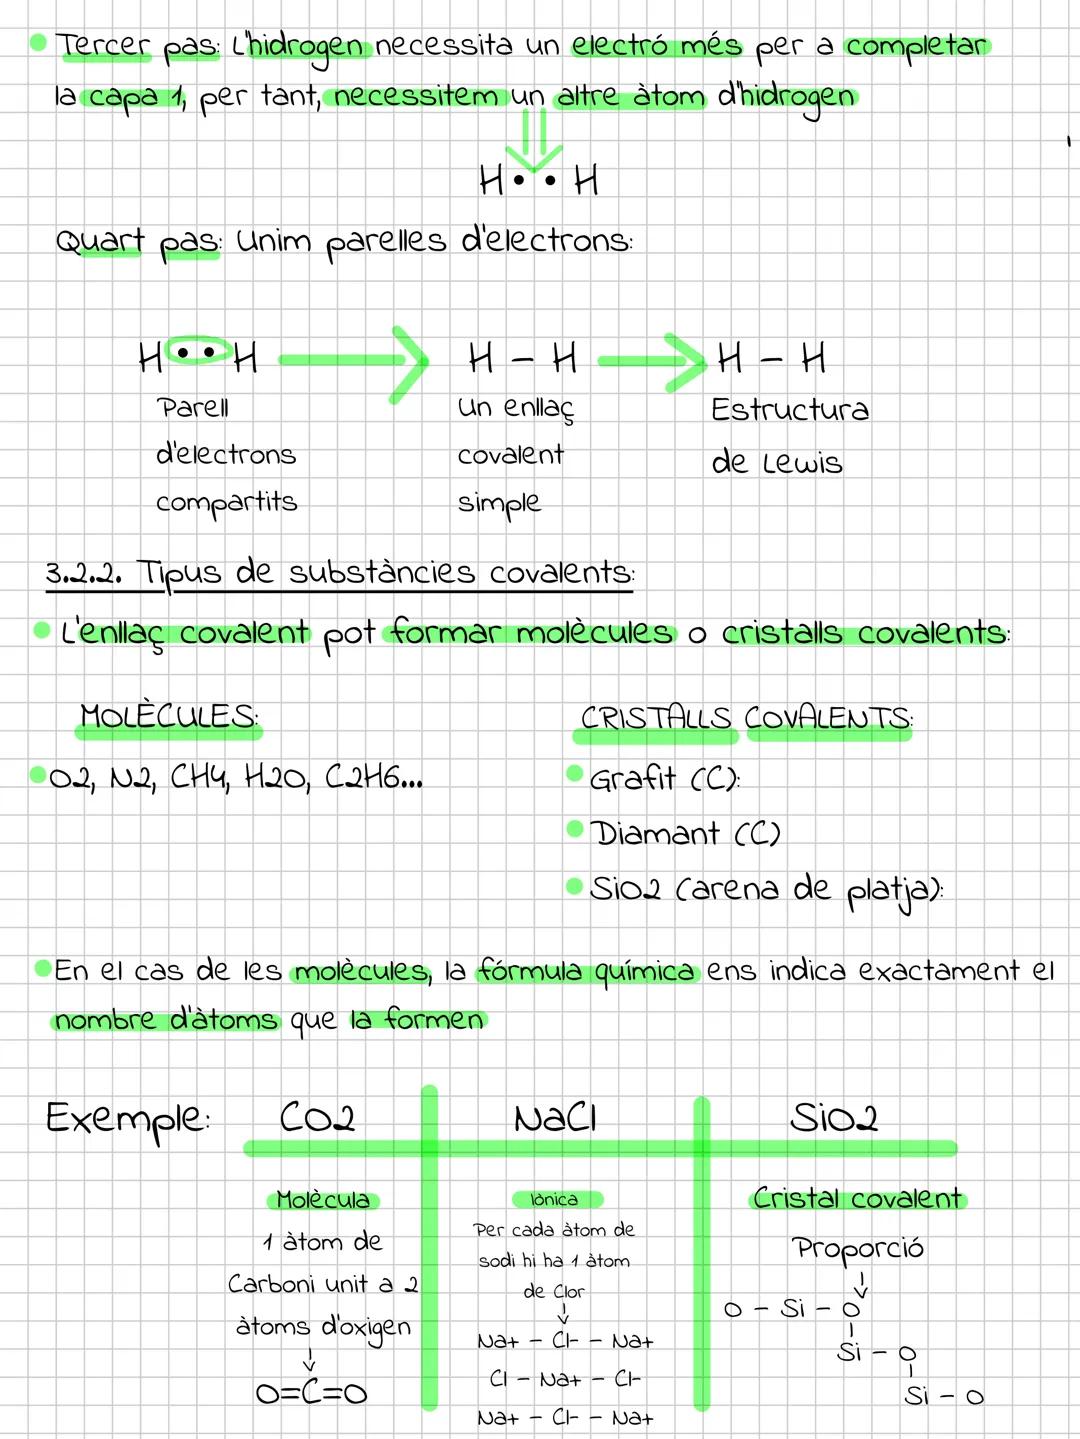 Tercer pas: L'hidrogen necessita un electró més per a completar
la capa 1, per tant, necessitem un altre àtom d'hidrogen
H • • H
Quart pas: Unim parelles d'electrons:
H • • H
Parell
d'electrons
compartits
H - H
Un enllaç
covalent
simple
H - H
Estructura
de Lewis
3.2.2. Tipus de substàncies covalents:
L'enllaç covalent pot formar molècules o cristalls covalents:
MOLÈCULES:
O2, N2, CH4, H2O, C2H6...
CRISTALLS COVALENTS:
Grafit (C):
Diamant (C)
SiO2 (arena de platja):
En el cas de les molècules, la fórmula química ens indica exactament el
nombre d'àtoms que la formen
Exemple:
CO2
Molècula
1 àtom de
Carboni unit a 2
àtoms d'oxigen
O=C=O
NaCl
Iònica
Per cada àtom de
sodi hi ha 1 àtom
de Clor
Na+ - Cl- - Na+
Cl - Na+ - Cl-
Na+ - Cl- - Na+
SiO2
Cristal covalent
Proporció
O - Si - O
Si - O
Si - O